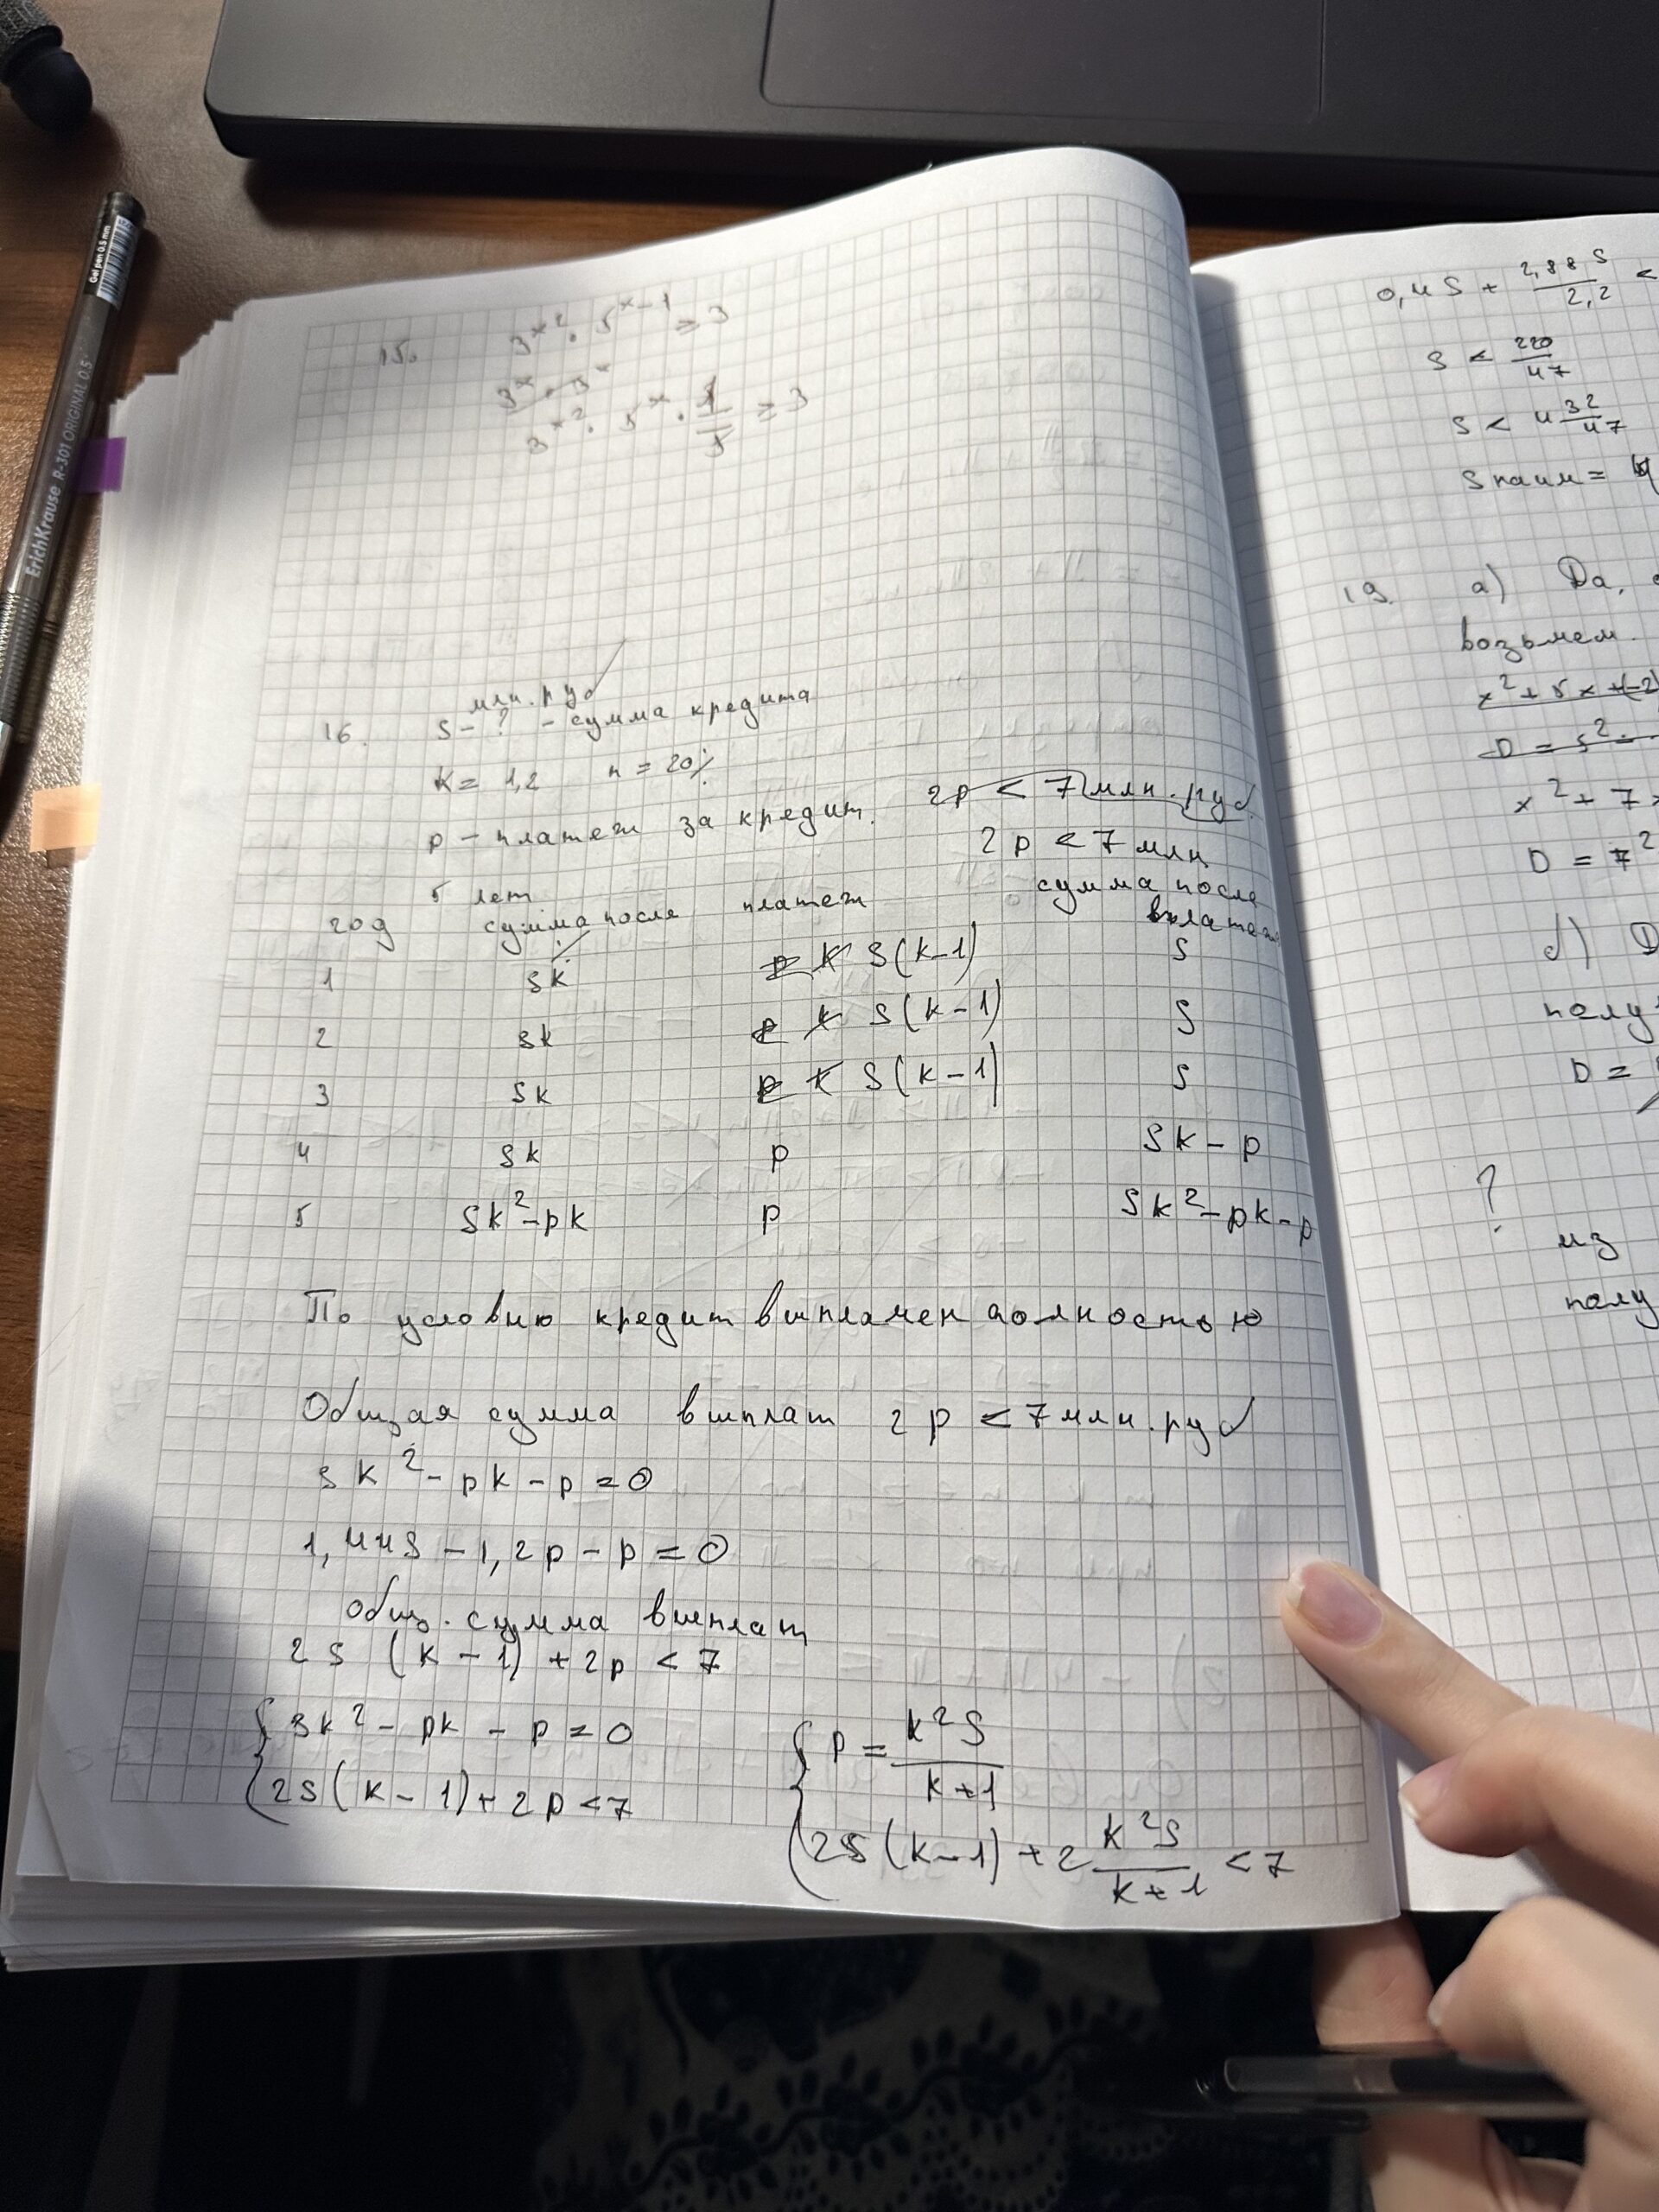 Gel pen 0.5 mm
ErichKrause R-301 ORIGINAL 0.5
15. 3^x² · 5^x-1 ≥ 3
3^x · 3^x
3^x² · 5^x · 1/5 ≥ 3
млн. руб
16. S - ? - сумма кредита
K = 1,2 n = 20%
p - платеж за кредит. 2p < 7 млн. руб.
2p < 7 млн
5 лет
год сумма после платеж сумма после вплатеж
1 sk p k S(k-1) S
2 sk p k S(k-1) S
3 sk p k S(k-1) S
4 sk p Sk - p
5 Sk² - pk p Sk² - pk - p
По условию кредит выплачен полностью
Общая сумма выплат 2p < 7 млн. руб
Sk² - pk - p = 0
1,44S - 1,2p - p = 0
общ. сумма выплат
2S (k - 1) + 2p < 7
{ Sk² - pk - p = 0
{ 2S(k - 1) + 2p < 7
{ p = k²S / k+1
{ 2S(k-1) + 2 k²S / k+1 < 7
0,4S + 2,88S / 2,2 <
S < 220/47
S < 4 32/47
Sнаим =
19. а) Да,
возьмем.
x² + 5x + (-2)
D = 5² -
x² + 7x
D = 7²
б) D
полу
D =
?
из
полу